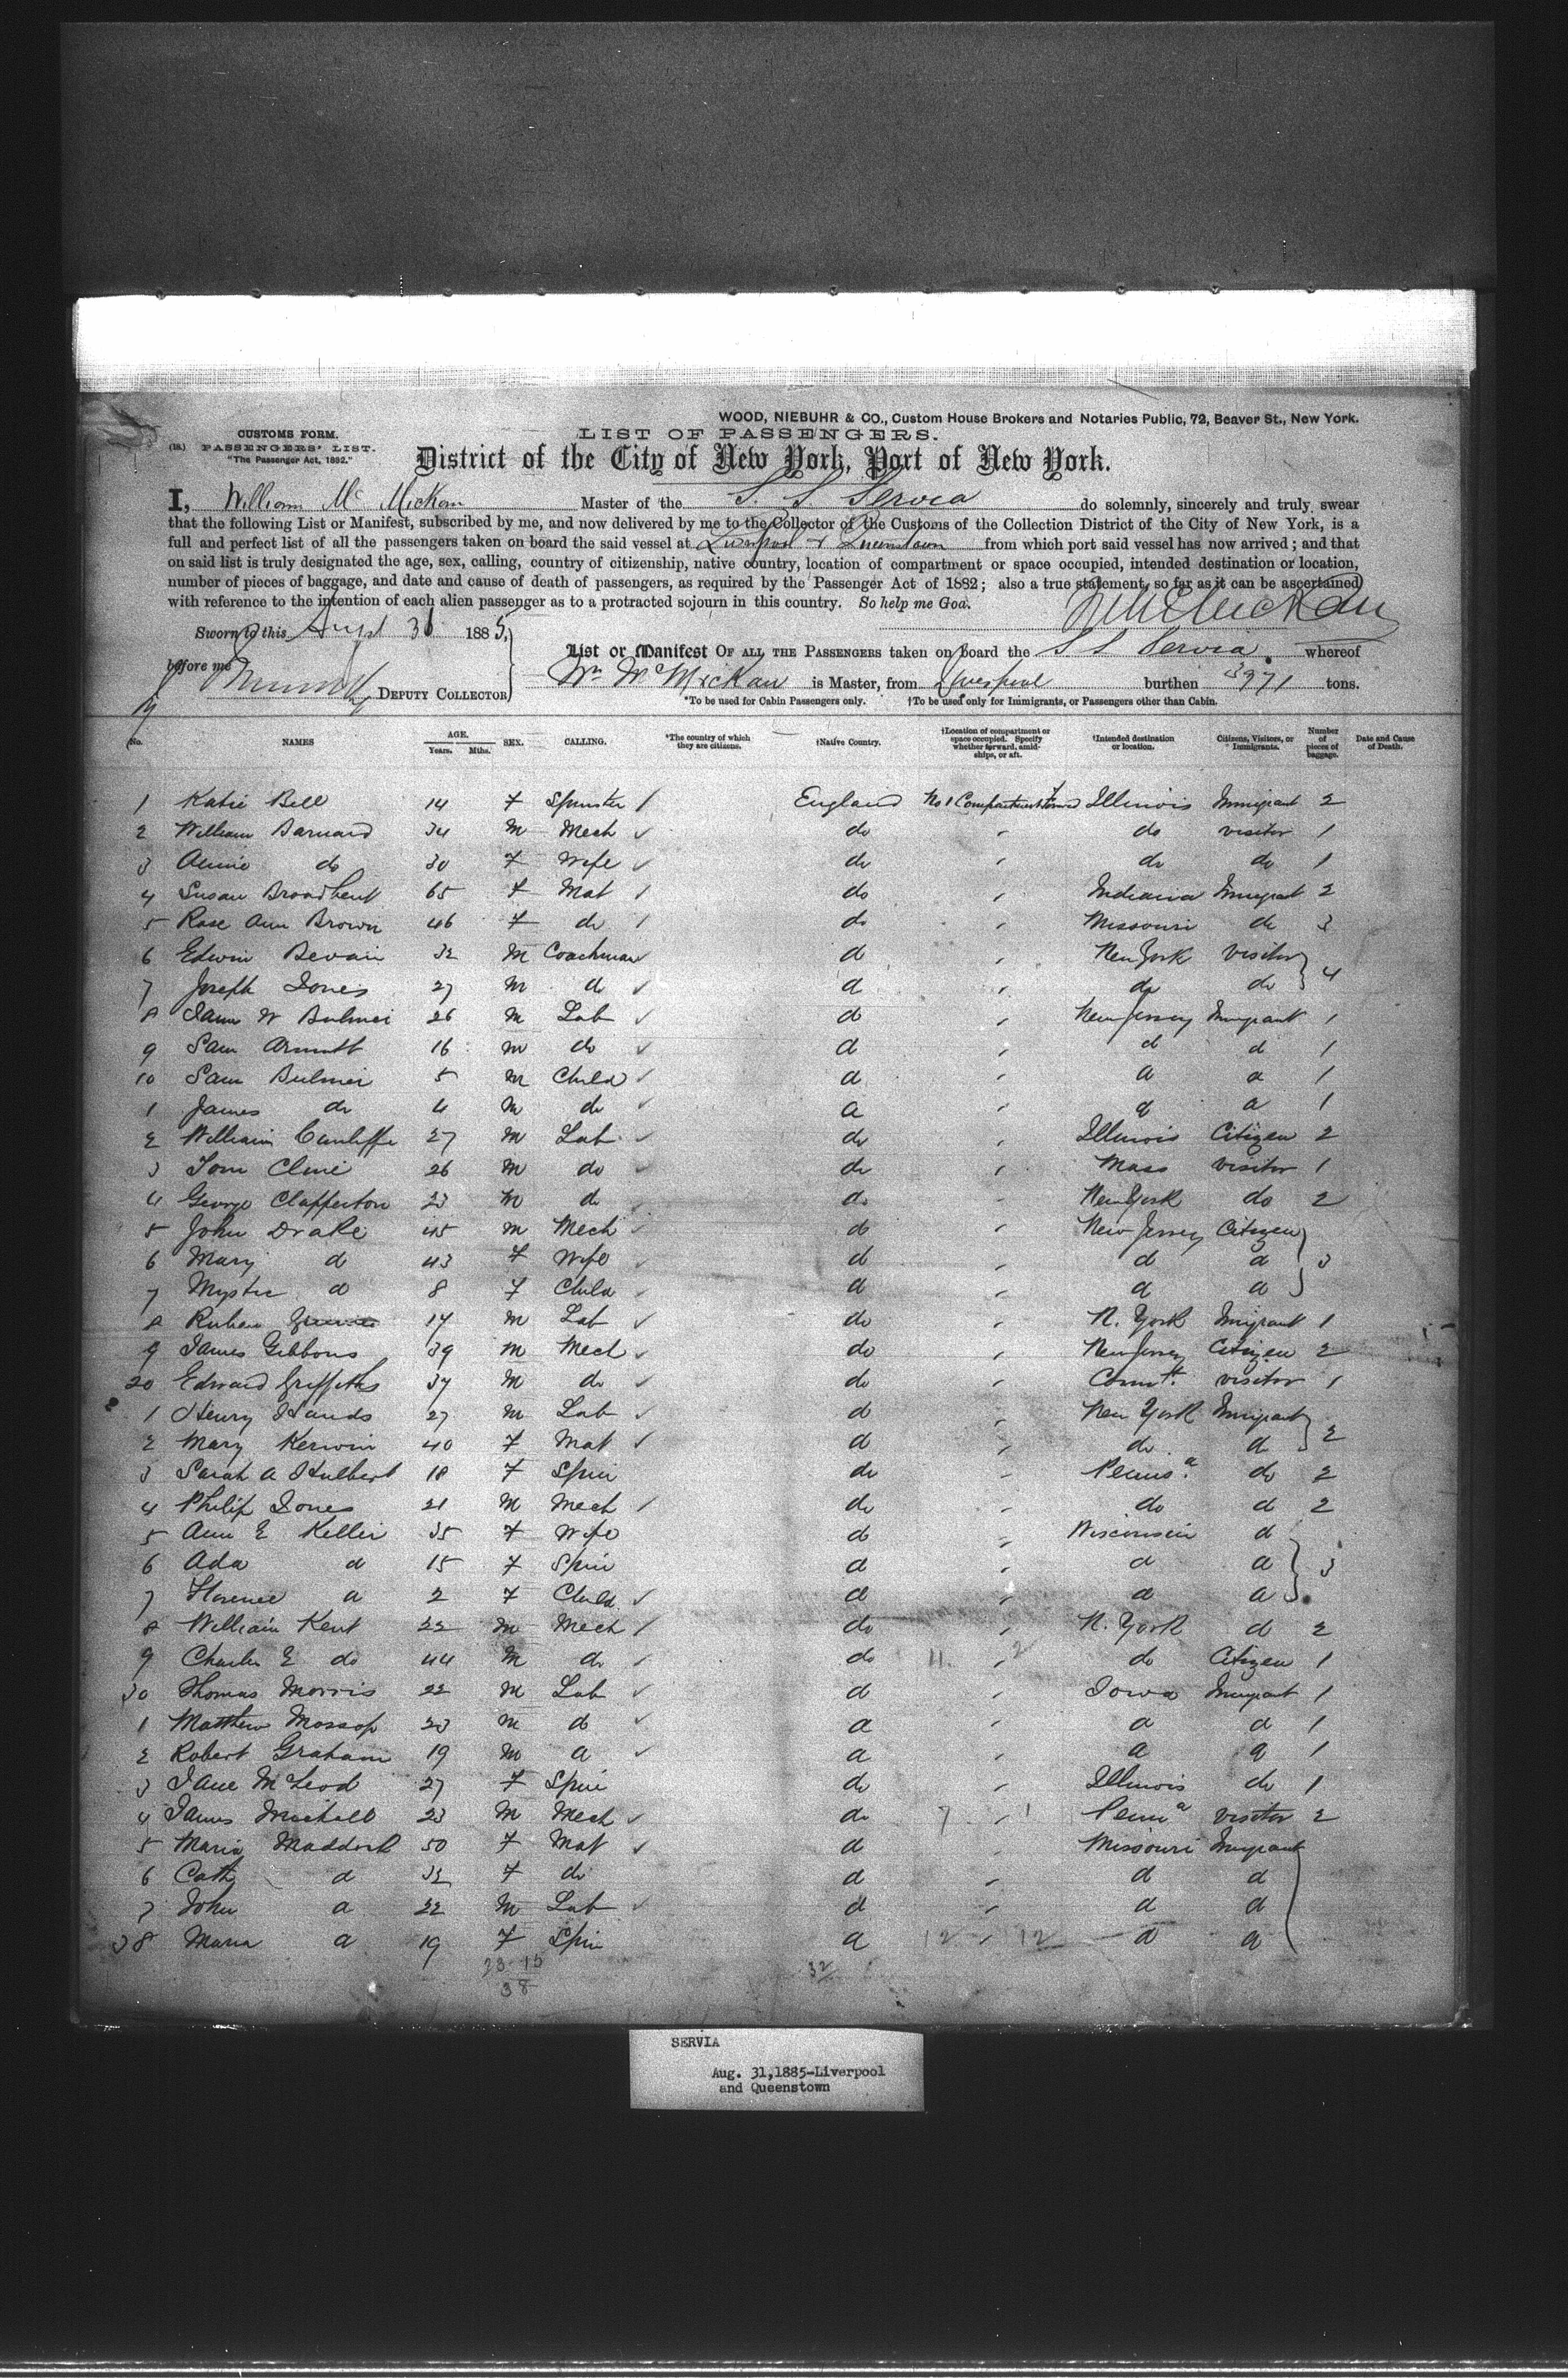 WOOD, NIEBUHR & CO., Custom House Brokers and Notaries Public, 72, Beaver St., New York.
CUSTOMS FORM.
PASSENGERS' LIST.
"The Passenger Act, 1882."
LIST OF PASSENGERS.
District of the City of New York, Port of New York.
I, William Mc Mickan Master of the S. S. Servia do solemnly, sincerely and truly swear
that the following List or Manifest, subscribed by me, and now delivered by me to the Collector of the Customs of the Collection District of the City of New York, is a
full and perfect list of all the passengers taken on board the said vessel at Liverpool & Queenstown from which port said vessel has now arrived; and that
on said list is truly designated the age, sex, calling, country of citizenship, native country, location of compartment or space occupied, intended destination or location,
number of pieces of baggage, and date and cause of death of passengers, as required by the Passenger Act of 1882; also a true statement, so far as it can be ascertained
with reference to the intention of each alien passenger as to a protracted sojourn in this country. So help me God.
Sworn to this Augst 31 1885,
before me DEPUTY COLLECTOR
List or Manifest OF ALL THE PASSENGERS taken on board the S S Servia whereof
Wm McMickan is Master, from Liverpool burthen 3971 tons.
*To be used for Cabin Passengers only. †To be used only for Immigrants, or Passengers other than Cabin.
No. NAMES AGE. Years. Mths. SEX. CALLING. *The country of which they are citizens. †Native Country. †Location of compartment or space occupied. Specify whether forward, amidships, or aft. †Intended destination or location. Citizens, Visitors, or Immigrants. Number of pieces of baggage. Date and Cause of Death.
1 Katie Bell 14 F Spinster England No 1 Compartment Forwd Illinois Immigrant 2
2 William Barnard 34 M Mech do do visitor 1
3 Annie do 30 F Wife do do do 1
4 Susan Broadbent 65 F Mat do Indiana Immigrant 2
5 Rose Ann Brown 46 F do do Missouri do 3
6 Edwin Bevan 32 M Coachman d New York visitor
7 Joseph Jones 27 M do d do do 4
8 James W Bulmer 26 M Lab d New Jersey Immigrant 1
9 Sam 16 M do d d d 1
10 Sam Bulmer 5 M Child d d d 1
1 James do 4 M do d d d 1
2 William Cunliffe 27 M Lab do Illinois Citizen 2
3 Tom Cline 26 M do do Mass visitor 1
4 George Clapperton 23 M do do New York do 2
5 John Drake 45 M Mech d New Jersey Citizen
6 Mary d 43 F Wife d d d 3
7 d 8 F Child d d d
8 Ruben 17 M Lab do N. York Imigrant 1
9 James Gibbons 39 M Mech do New Jersey Citizen 2
20 Edward Griffiths 37 M do do Connt. visitor 1
1 Henry Hands 27 M Lab d New York Imigrant
2 Mary Kerwin 40 F Mat d do d 2
3 Sarah A Hulbert 18 F Spin do Penns.a do 2
4 Philip Jones 21 M Mech do do d 2
5 Ann E Keller 35 F Wife d Wisconsin d
6 Ada d 15 F Spin d d d 3
7 Florence d 2 F Child d d d
8 William Kent 22 M Mech do N. York d 2
9 Charles E do 44 M do do 11 2 do Citizen 1
30 Thomas Morris 22 M Lab d Iowa Imigrant 1
1 Matthew Mossop 23 M d d d d 1
2 Robert Graham 19 M d d d d 1
3 Jane McLeod 27 F Spin do Illinois do 1
4 James 23 M Mech do 7 1 Penna visitor 2
5 Maria Maddock 50 F Mat d Missouri Imigrant
6 Cath d 32 F do d d d
7 John d 22 M Lab d d d
38 Maria d 19 F Spin d 12 12 d d
23 15 32
38
SERVIA
Aug. 31,1885-Liverpool
and Queenstown